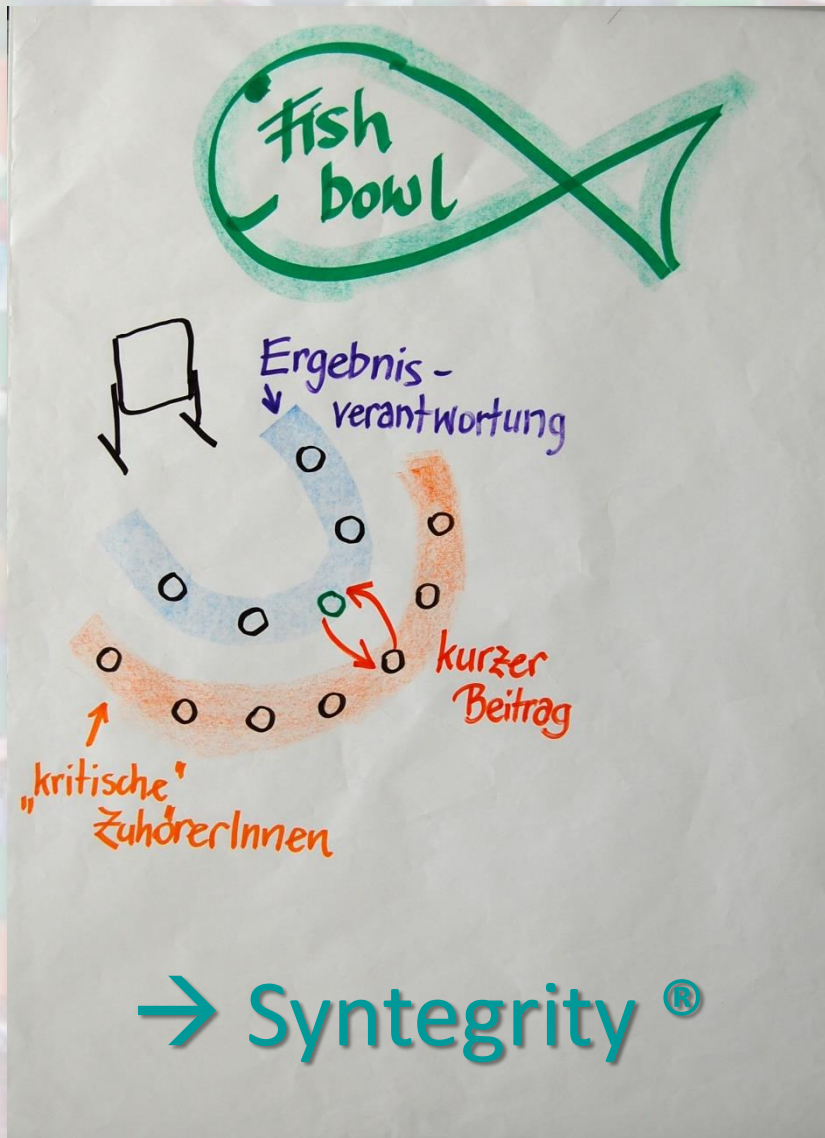 Fish
bowl
Ergebnis-
verantwortung
kurzer
Beitrag
„kritische"
ZuhörerInnen
→ Syntegrity ®